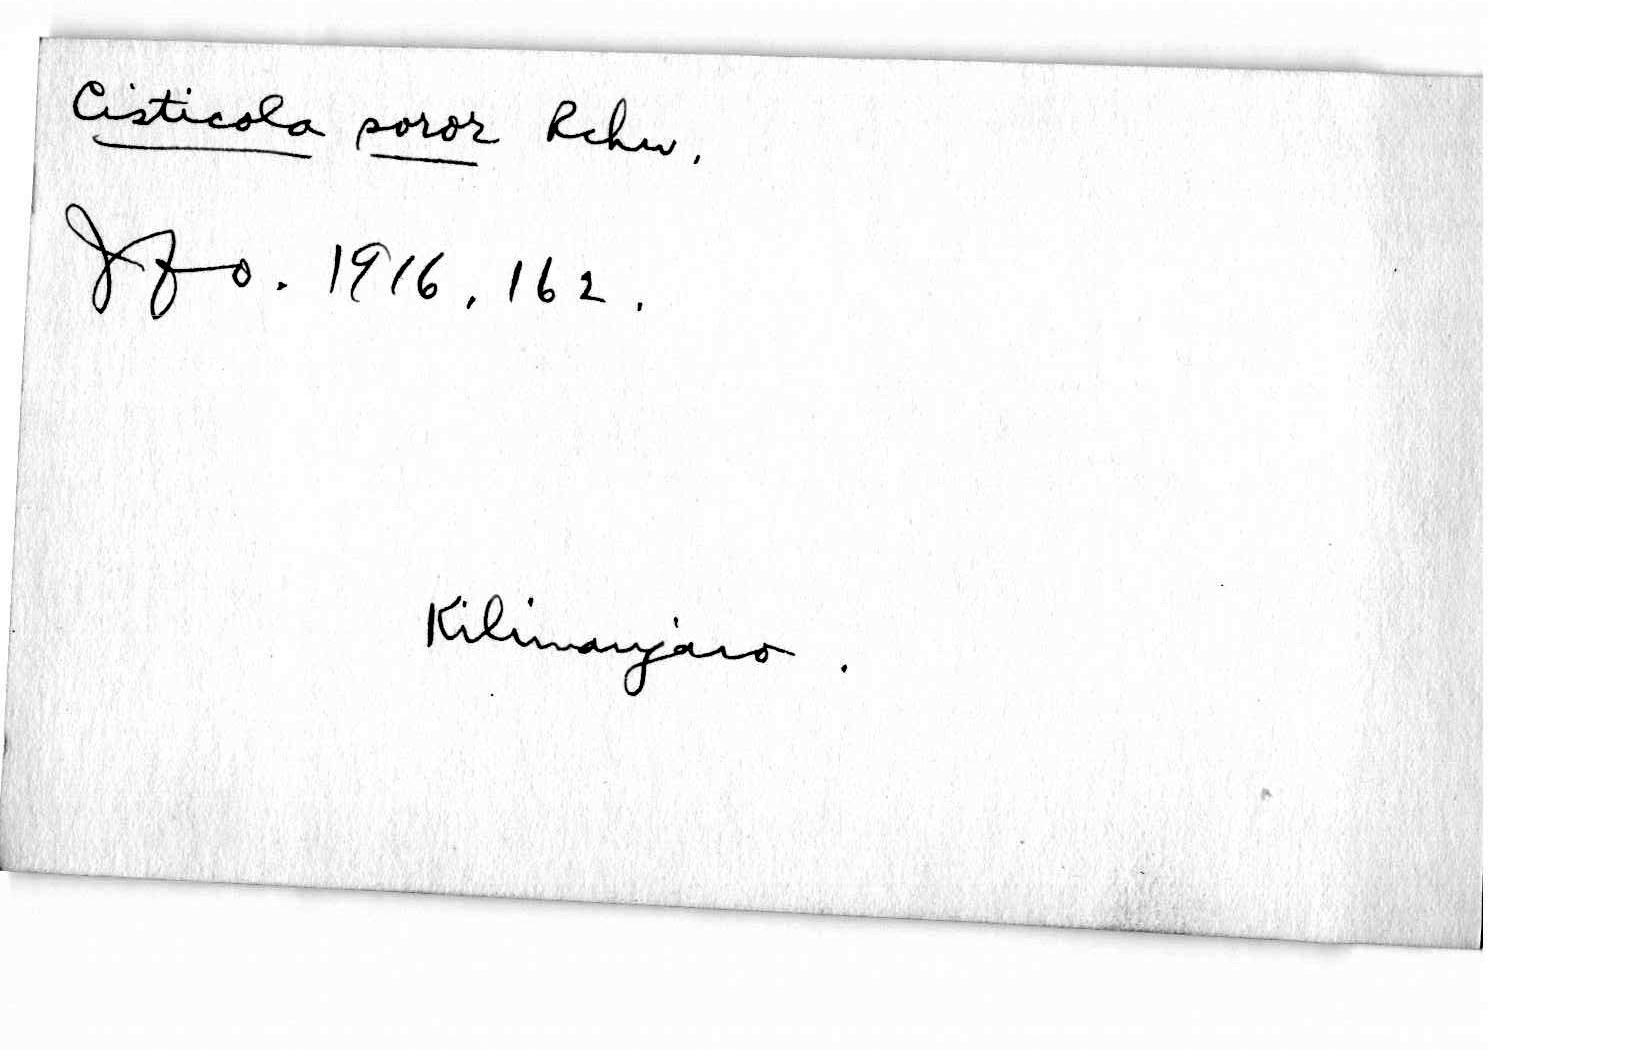 Cisticola soror Rchw.
JfO. 1916, 162.
Kilimanjaro.